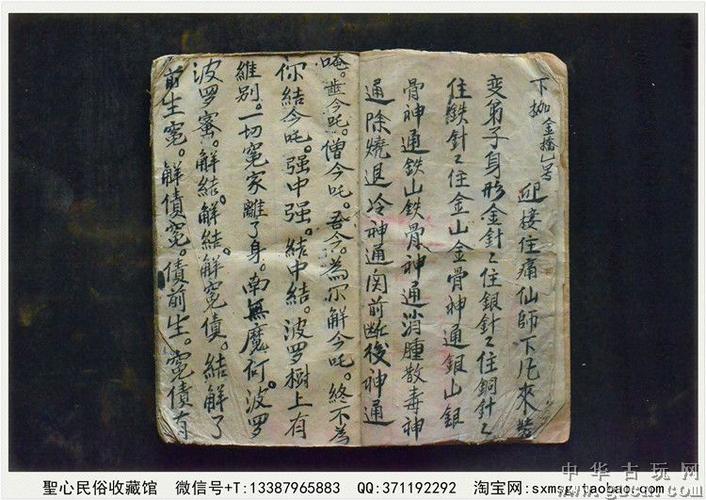 下枷金撿一号
迎接住痛仙師下凡來裝
变弟子身形金針〻住銀針〻住銅針〻
住鉄針〻住金山金骨神通銀山銀
骨神通鉄山鉄骨神通消腫散毒神
通除燒退冷神通関前斷後神通
唵。今吒。僧今吒。吾今。為尔解今吒。終不為
你結今吒。强中强。結中結。波罗樹上有
維别。一切冤家離了身。南無魔何。波罗
波罗宻。解結。解結。解冤債。結解了
前生冤。解債冤。債前生。冤債有
聖心民俗收藏馆 微信号+T:13387965883 QQ:371192292 淘宝网:sxmsg.taobao.com
中华古玩网
www.gucn.com